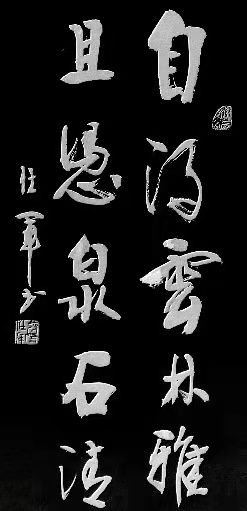 自得雲林雅
且憑泉石清
軍书